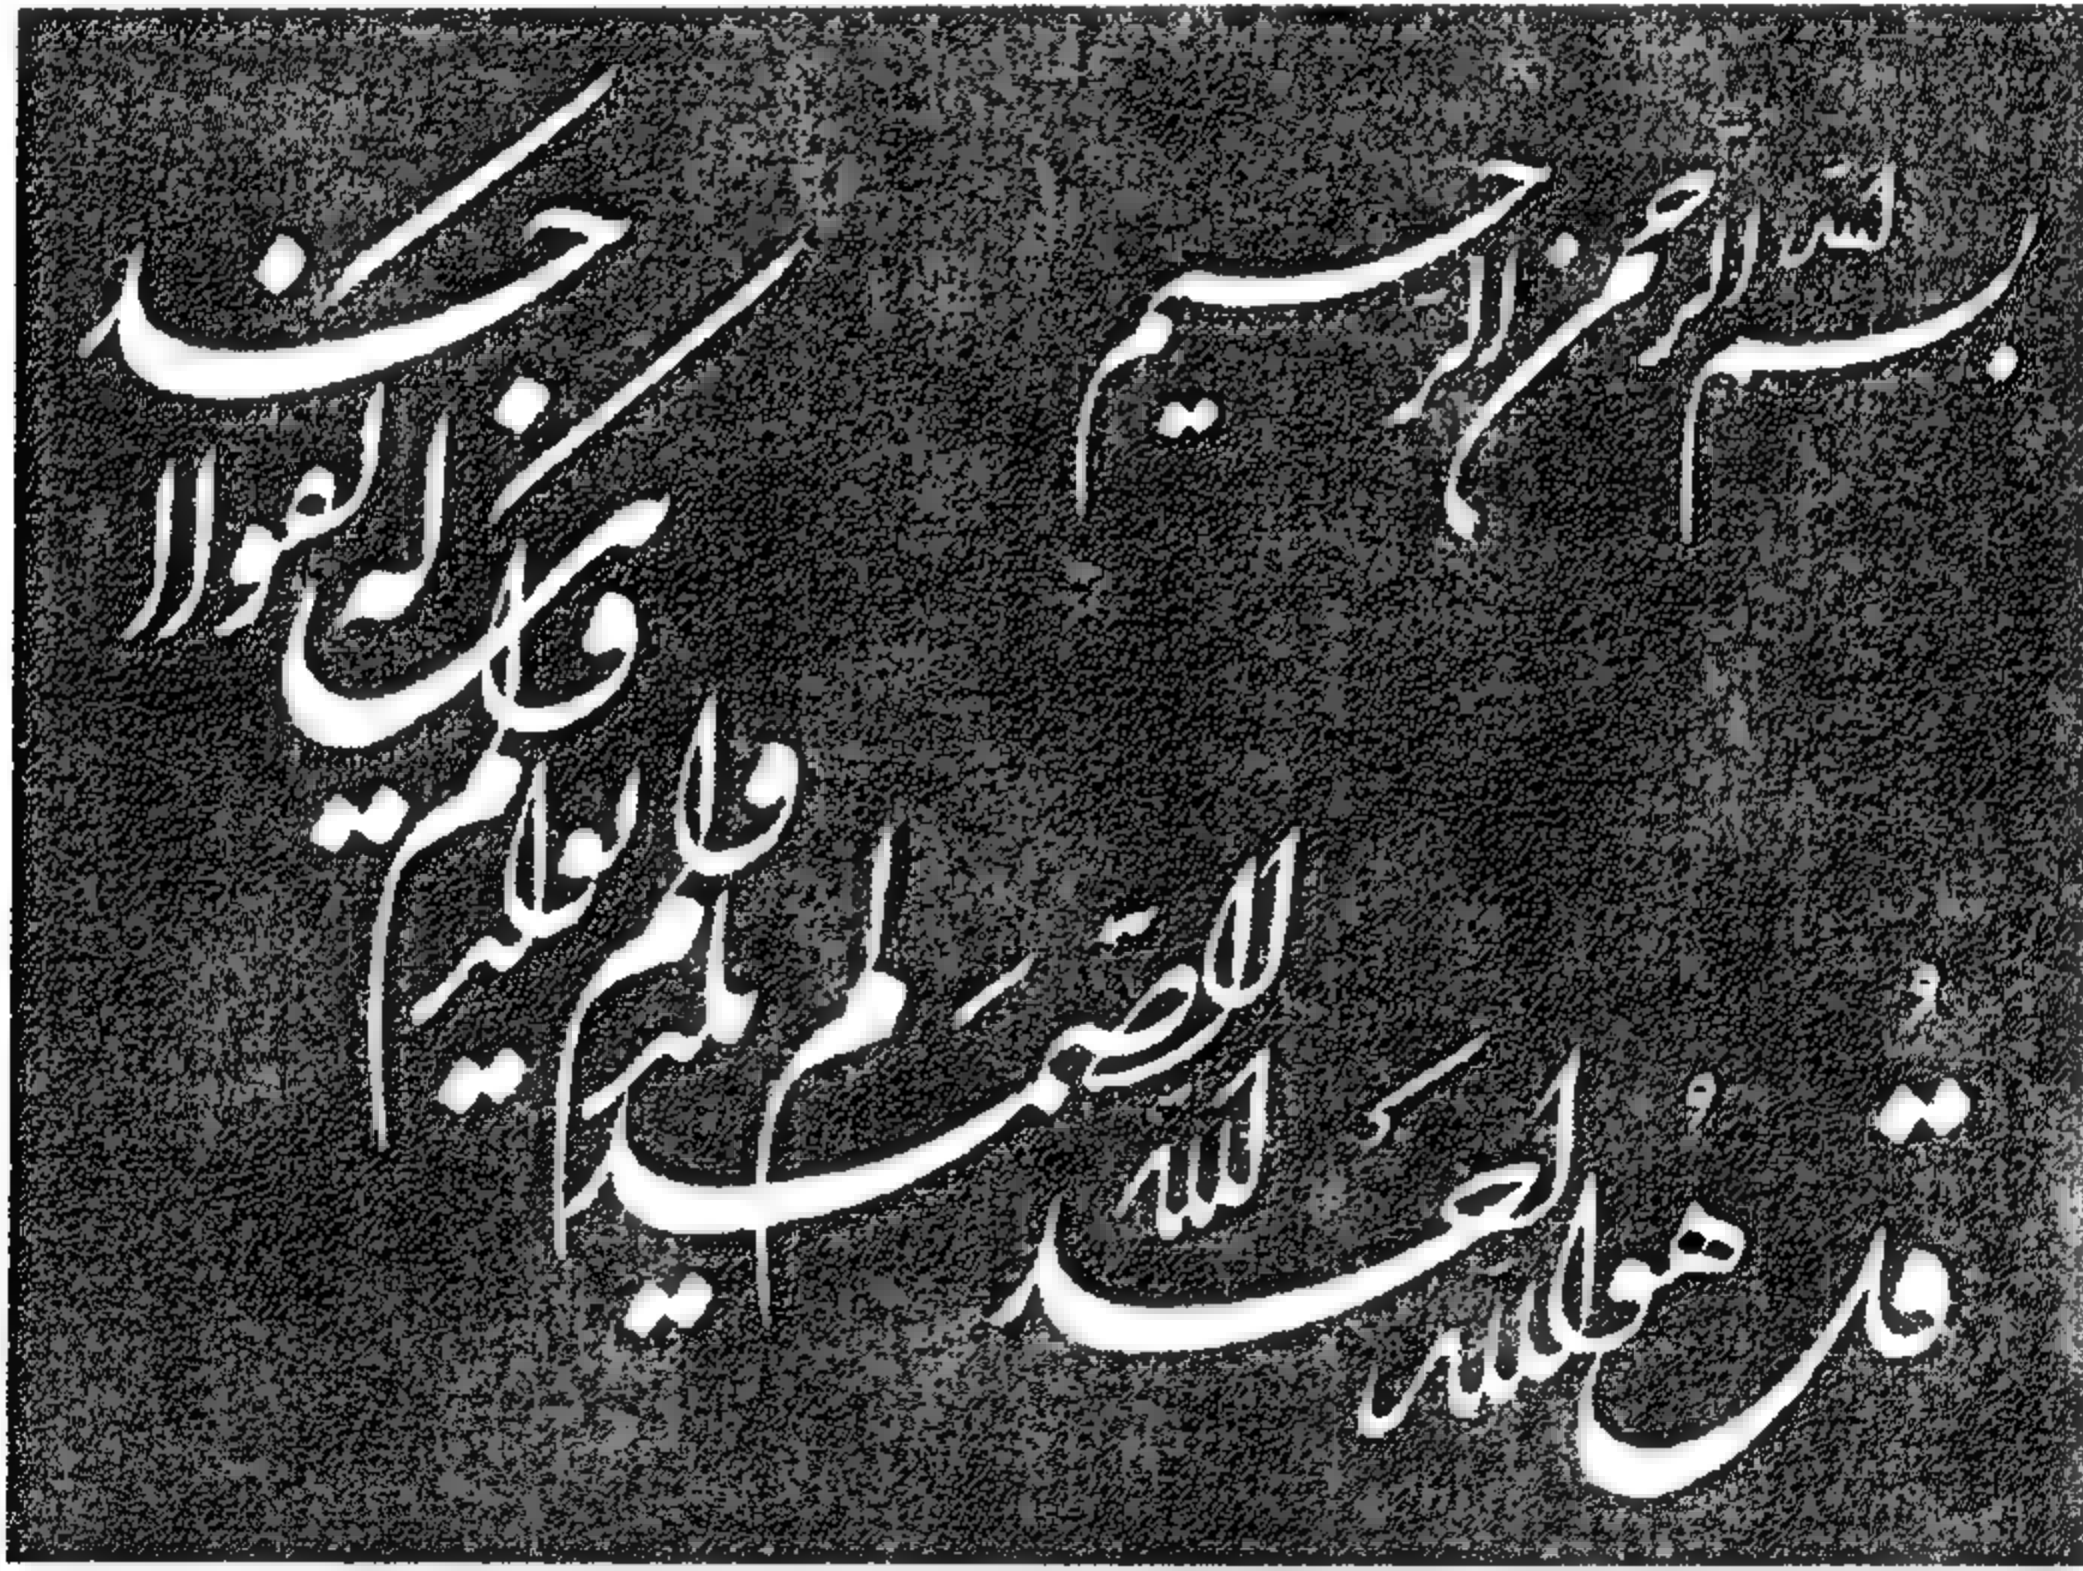 بسم الله الرحمن الرحیم
قل هو الله احد
الله الصمد
لم یلد
و لم یولد
و لم یکن
له کفوا احد